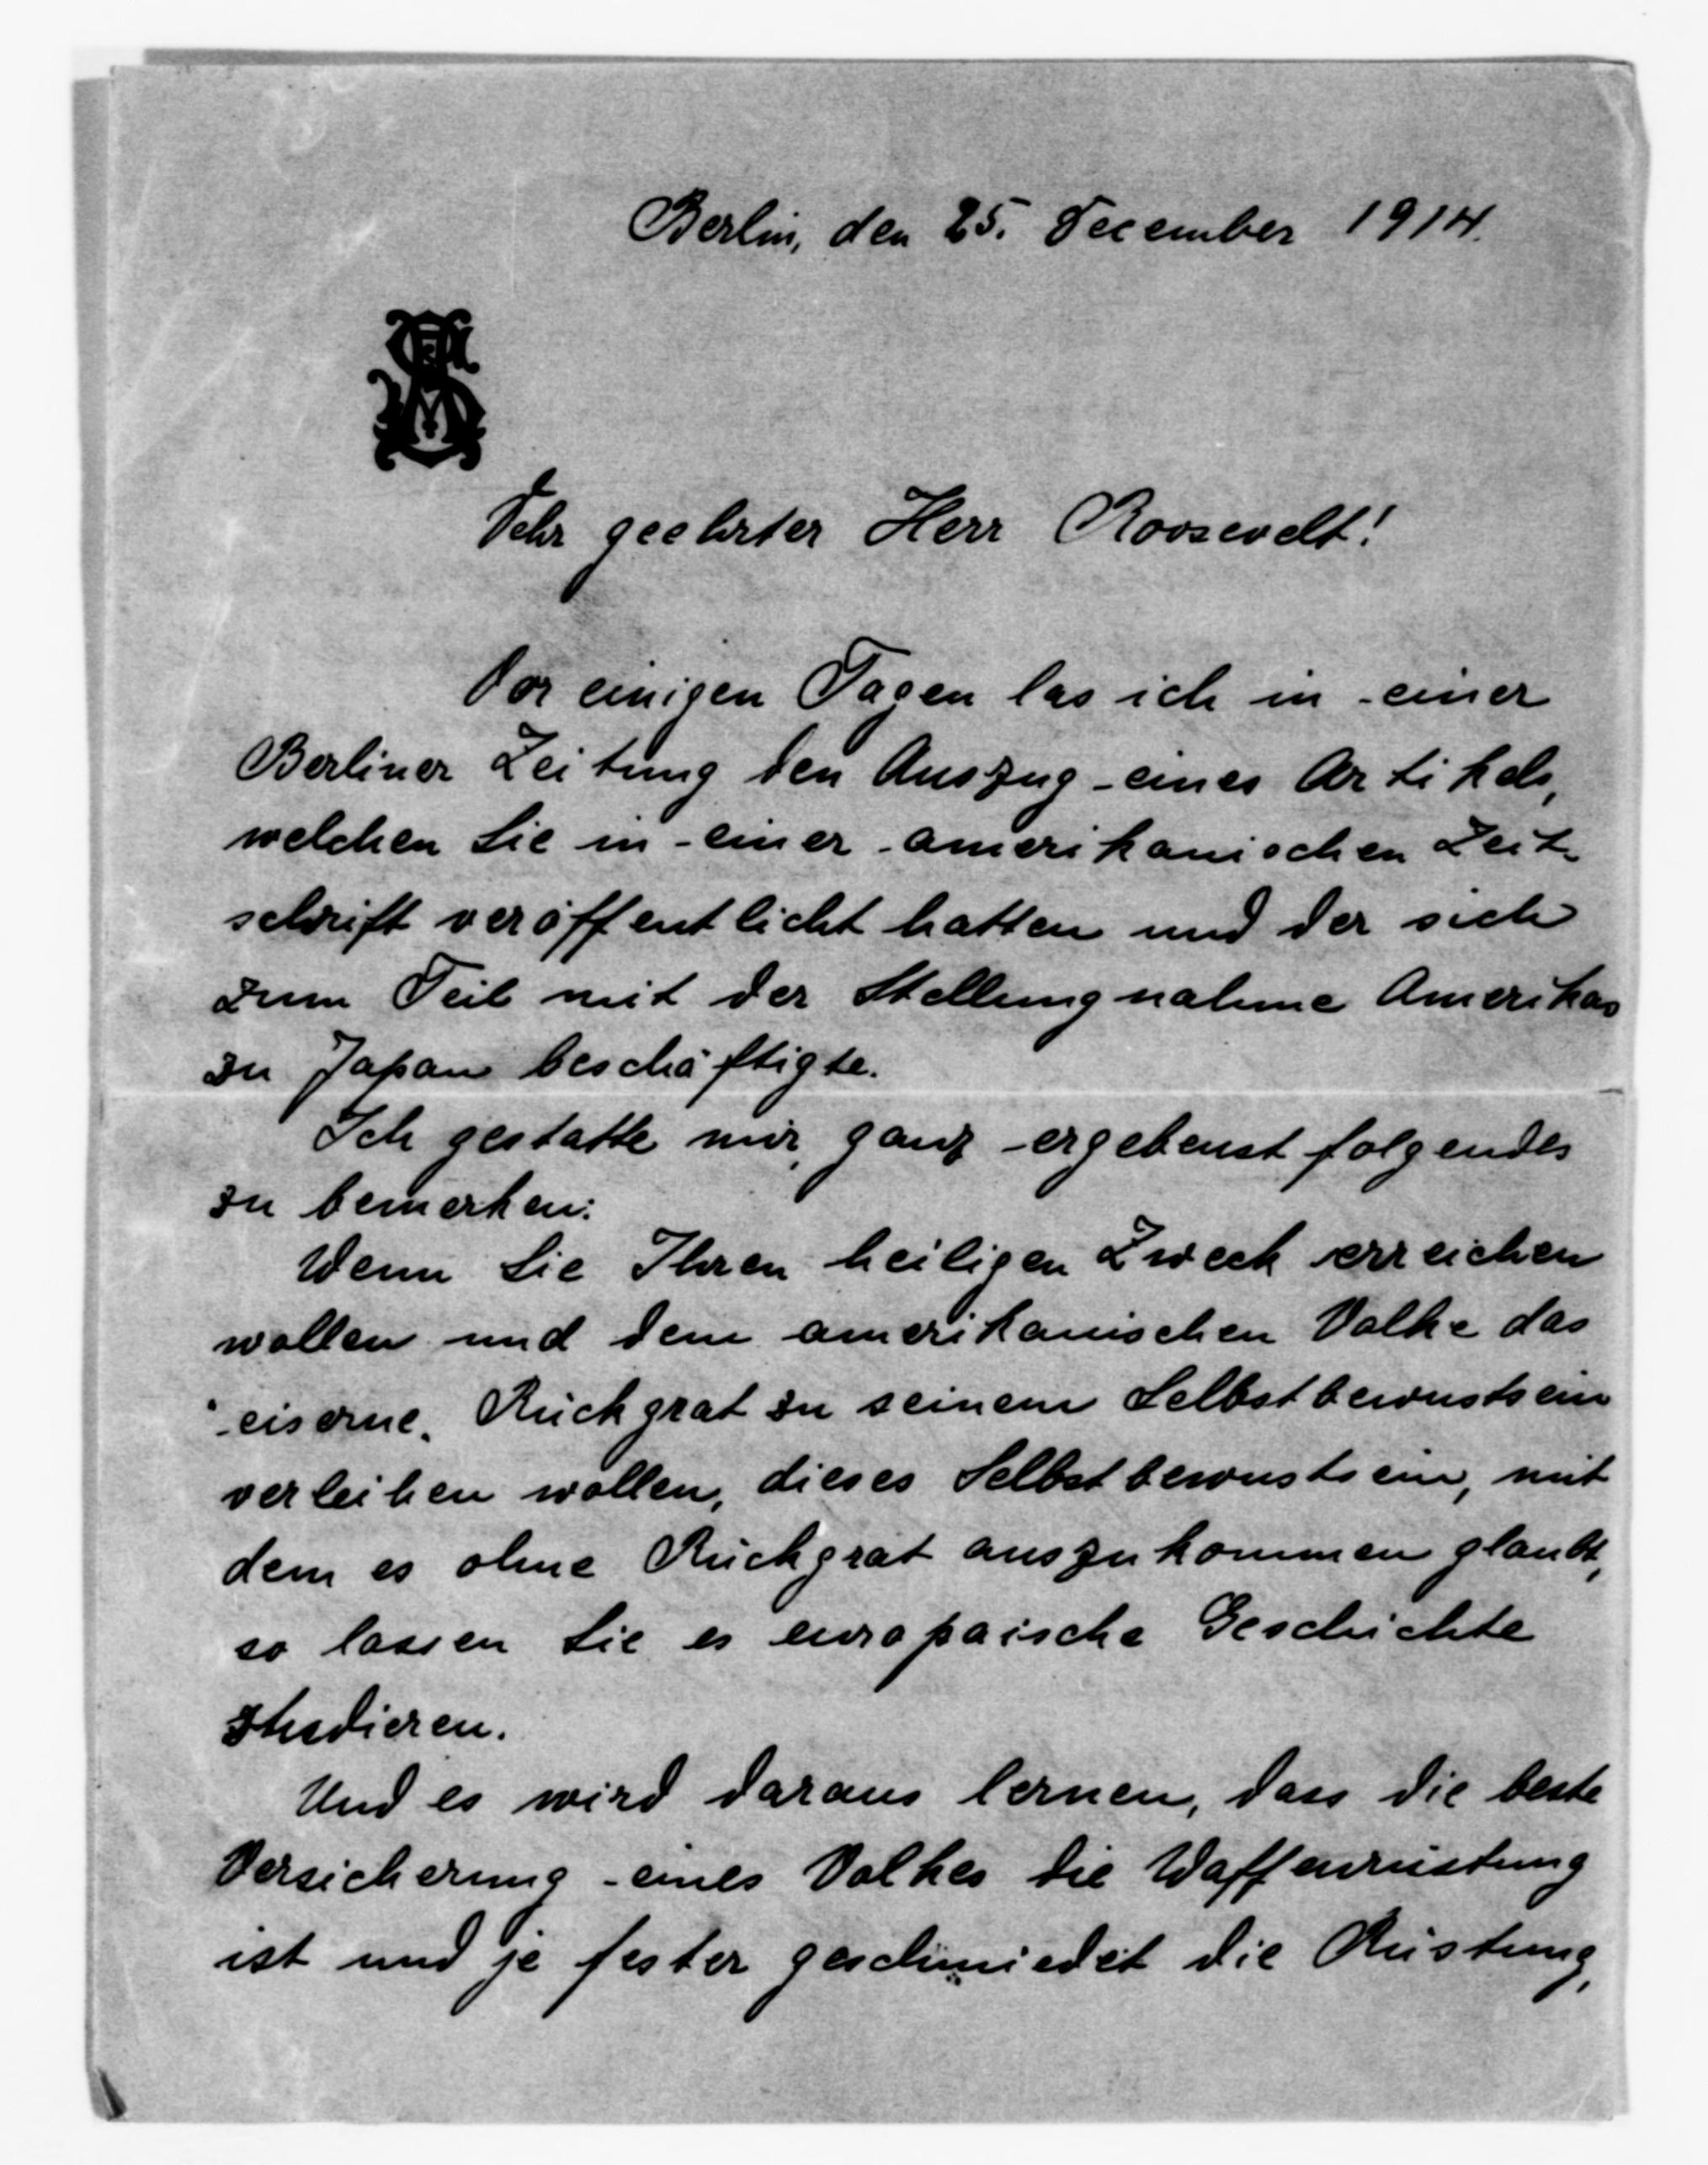 Berlin, den 25. December 1914.
Sehr geehrter Herr Roosevelt!
Vor einigen Tagen las ich in einer
Berliner Zeitung den Auszug eines Artikels,
welchen Sie in einer amerikanischen Zeit-
schrift veröffentlicht hatten und der sich
zum Teil mit der Stellungnahme Amerikas
zu Japan beschäftigte.
Ich gestatte mir, ganz ergebenst folgendes
zu bemerken:
Wenn Sie Ihren heiligen Zweck erreichen
wollen und dem amerikanischen Volke das
eiserne Rückgrat zu seinem Selbstbewustsein
verleihen wollen, dieses Selbstbewustsein, mit
dem es ohne Rückgrat auszukommen glaubt,
so lassen Sie es europäische Geschichte
studieren.
Und es wird daraus lernen, dass die beste
Versicherung eines Volkes die Waffenrüstung
ist und je fester geschmiedet die Rüstung,